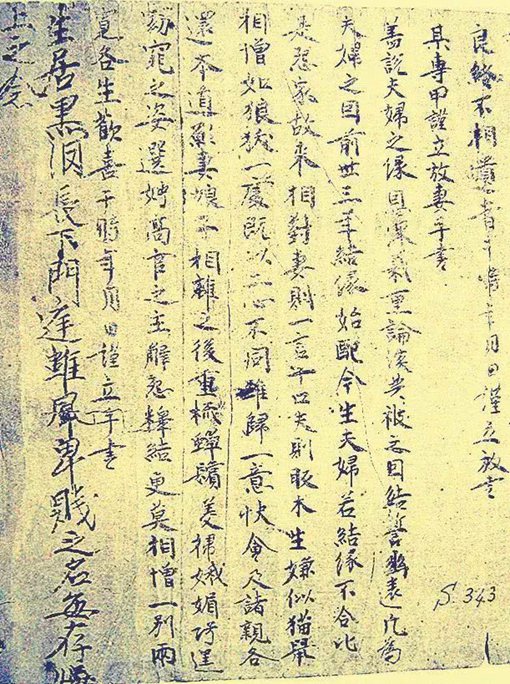 良緣不相遺書于時年月日謹立放書
某專甲謹立放妻手書
蓋說夫婦之緣恩深義重論談共被之因結誓幽遠凡為
夫婦之因前世三年結緣始配今生夫婦若結緣不合比
是怨家故來相對妻則一言十口夫則木生嫌似猫鼠
相憎如狼一處既以二心不同難歸一意快會及諸親各
還本道願妻娘子相離之後重梳蟬鬢美掃娥媚巧逞
窈窕之姿選娉高官之主解怨釋結更莫相憎一別兩
寬各生歡喜于時年月日謹立手書
生居黑長下門庭雖居卑賤之名每存
上之念
S.343